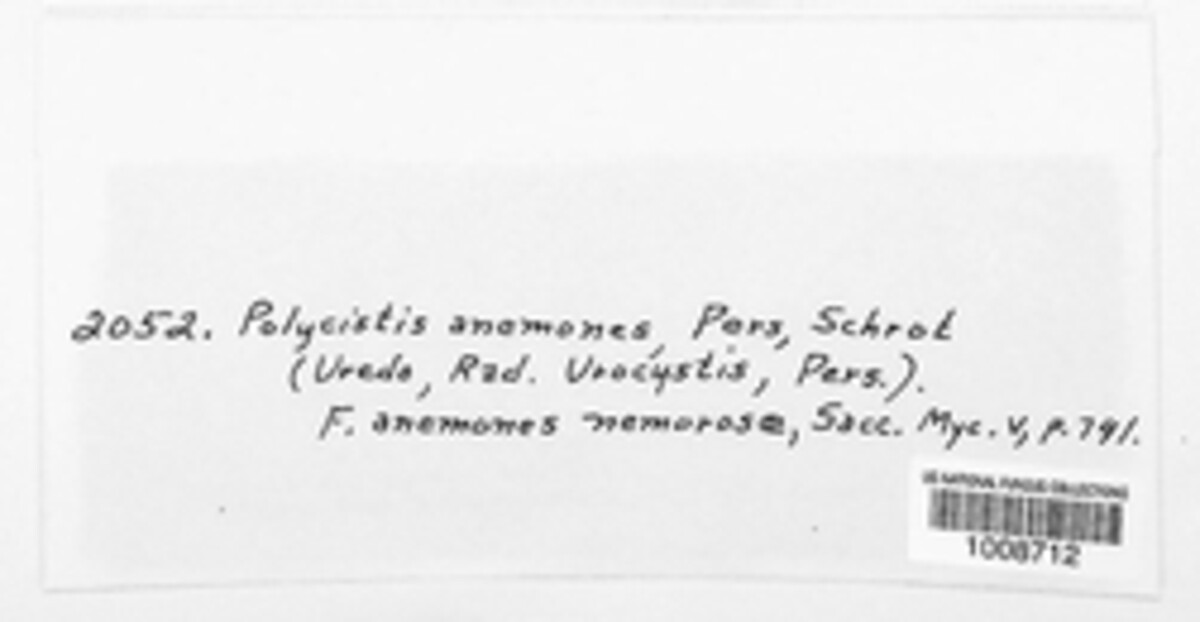 2052. Polycistis anemones, Pers, Schrot
(Uredo, Rad. Urocystis, Pers.).
F. anemones nemorose, Sacc. Myc. V, p. 791.
US NATIONAL FUNGUS COLLECTIONS
1008712